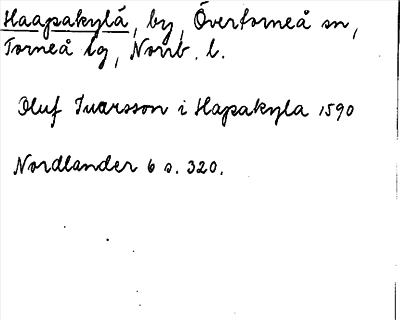 Haapakylä, by, Övertorneå sn,
Torneå tg, Norrb. l.
Oluf Iuarsson i Hapakyla 1590
Nordlander 6 s. 320.